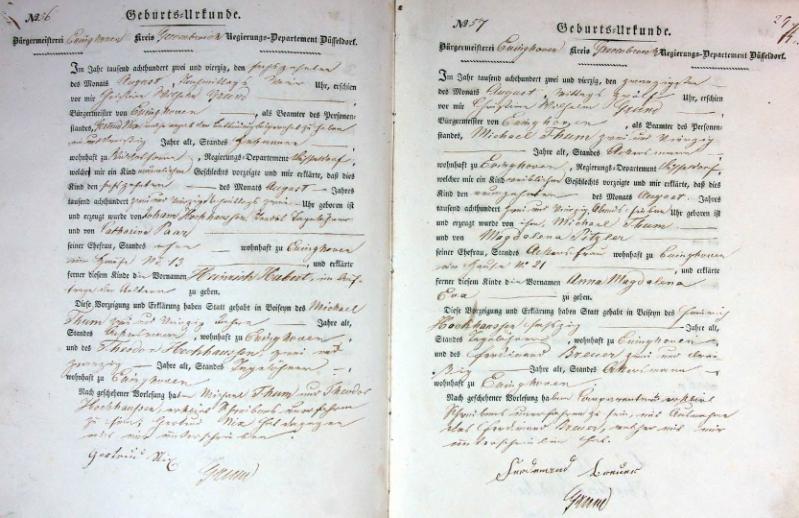 № 56
Geburts-Urkunde.
Bürgermeisterei Evinghoven Kreis Grevenbroich Regierungs-Departement Düsseldorf.
Im Jahr tausend achthundert zwei und vierzig, den sechszehnten
des Monats August, Uhr, erschien
vor mir Christian Wilhelm Grund
Bürgermeister von Evinghoven, als Beamter des Personen-
standes, Gertrud Nix
Jahre alt, Standes Hebamme
wohnhaft zu , Regierungs-Departement Düsseldorf,
welche mir ein Kind männlichen Geschlechts vorzeigte und mir erklärte, daß dies
Kind den sechszehnten des Monats August Jahrs
tausend achthundert zwei und vierzig Uhr geboren ist
und erzeugt wurde von Johann Hockhaussen, Standes Tagelöhner
und von Catharina Paar
seiner Ehefrau, Standes ohne wohnhaft zu Evinghoven
im Hause № 13, und erklärte
ferner diesem Kinde die Vornamen Heinrich Hubert, im Auf-
trage der Aeltern zu geben.
Diese Vorzeigung und Erklärung haben Statt gehabt in Beiseyn des Michael
Thum, zwei und vierzig Jahre Jahre alt,
Standes Ackersmann, wohnhaft zu Evinghoven
und des Theodor Hockhaussen, zwei und
zwanzig Jahre alt, Standes Tagelöhner
wohnhaft zu Evinghoven
Nach geschehener Vorlesung haben Michael Thum und Theodor
Hockhaussen, erklärt Schreibens unerfahren
zu sein; Gertrud Nix hat dagegen
mit mir unterschrieben.
Gertrud Nix
Grund
№ 57
29
Geburts-Urkunde.
Bürgermeisterei Evinghoven Kreis Grevenbroich Regierungs-Departement Düsseldorf.
Im Jahr tausend achthundert zwei und vierzig, den zwanzigsten
des Monats August, Mittags zwölf Uhr, erschien
vor mir Christian Wilhelm Grund
Bürgermeister von Evinghoven, als Beamter des Personen-
standes, Michael Thum zwei und vierzig
Jahre alt, Standes Ackersmann
wohnhaft zu Evinghoven, Regierungs-Departement Düsseldorf,
welcher mir ein Kind weiblichen Geschlechts vorzeigte und mir erklärte, daß dies
Kind den neunzehnten des Monats August Jahrs
tausend achthundert zwei und vierzig Abends sieben Uhr geboren ist
und erzeugt wurde von ihm, Michael Thum
und von Magdalena Pitzler
seiner Ehefrau, Standes Ackersfrau wohnhaft zu Evinghoven
im Hause № 21, und erklärte
ferner diesem Kinde die Vornamen Anna Magdalena
Eva zu geben.
Diese Vorzeigung und Erklärung haben Statt gehabt in Beiseyn des Heinrich
Hockhaussen sechszig Jahre alt,
Standes Tagelöhner, wohnhaft zu Evinghoven
und des Ferdinand Breuer zwei und drei-
ßig Jahre alt, Standes Ackersmann
wohnhaft zu Evinghoven
Nach geschehener Vorlesung haben Comparent und erklärt
Schreibens unerfahren zu sein, mit Ausnahme
des Ferdinand Breuer, welcher mit mir
unterschrieben hat.
Ferdinand Breuer
Grund